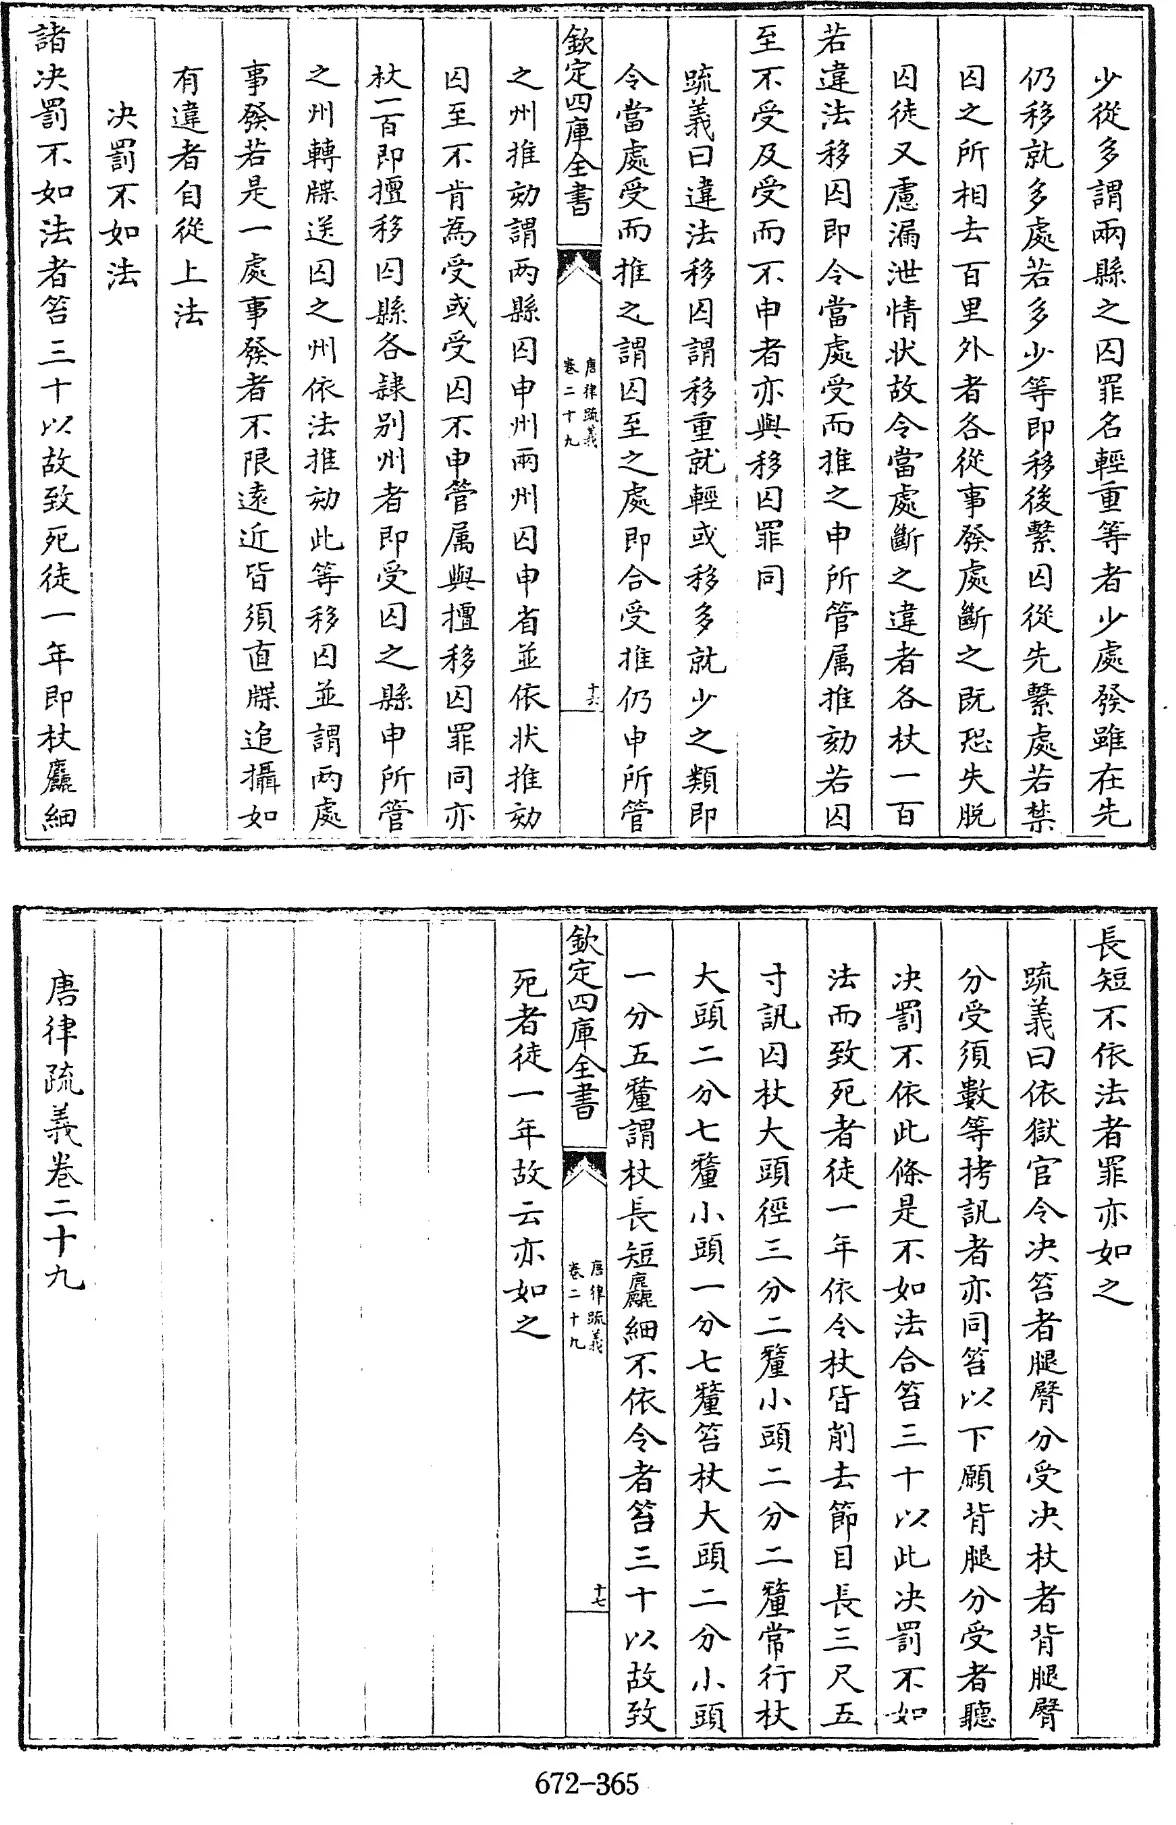 少從多謂兩縣之囚罪名輕重等者少處發雖在先
仍移就多處若多少等即移後繫囚從先繫處若禁
囚之所相去百里外者各從事發處斷之既恐失脱
囚徒又慮漏泄情狀故令當處斷之違者各杖一百
若違法移囚即令當處受而推之申所管属推劾若囚
至不受及受而不申者亦與移囚罪同
疏義曰違法移囚謂移重就輕或移多就少之類即
令當處受而推之謂囚至之處即合受推仍申所管
欽定四庫全書
唐律疏義
卷二十九
十六
之州推劾謂两縣囚申州兩州囚申省並依狀推劾
囚至不肯為受或受囚不申管属與擅移囚罪同亦
杖一百即擅移囚縣各隷别州者即受囚之縣申所管
之州轉牒送囚之州依法推劾此等移囚並謂两處
事發若是一處事發者不限遠近皆須直牒追攝如
有違者自從上法
决罰不如法
諸决罰不如法者笞三十以故致死徒一年即杖麤細
長短不依法者罪亦如之
疏義曰依獄官令决笞者腿臀分受决杖者背腿臀
分受須數等拷訊者亦同笞以下願背腿分受者聽
决罰不依此條是不如法合笞三十以此决罰不如
法而致死者徒一年依令杖皆削去節目長三尺五
寸訊囚杖大頭徑三分二釐小頭二分二釐常行杖
大頭二分七釐小頭一分七釐笞杖大頭二分小頭
一分五釐謂杖長短麤細不依令者笞三十以故致
欽定四庫全書
唐律疏義
卷二十九
十七
死者徒一年故云亦如之
唐律疏義卷二十九
672-365